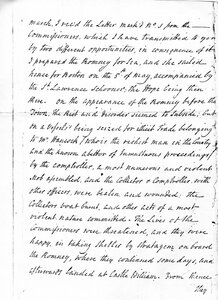 march, I rec'd the Letter mark'd No. 3 from the
Commissioners, which I have Transmitted to you
by two different opportunities, in consequence of
I prepared the Romney for Sea, and she sailed
hence for Boston on the of may, accompanied by
the St. Lawrence Schooner, the Hope being then
there. on the appearance of the Romney before the
Town, the Riot and disorder seemed to Subside, but
on a vessel's being seized for illicit Trade belonging
to Mr. Hancock (who is the richest man in the County,
and the known abettor of tumultuous proceedings)
by the comptroller, a most numerous and violent
mob assembled, and the Collector & Comptroller with
other officers, were beaten and wounded. the
Collector's boat burnt, and other acts of a most
violent nature committed. The Lives of the
Commissioners were threatened, and they were
happy, in taking shelter by Stratagem on board
the Romney, where they continued some days, and
afterwards landed at Castle William. From Hence
They